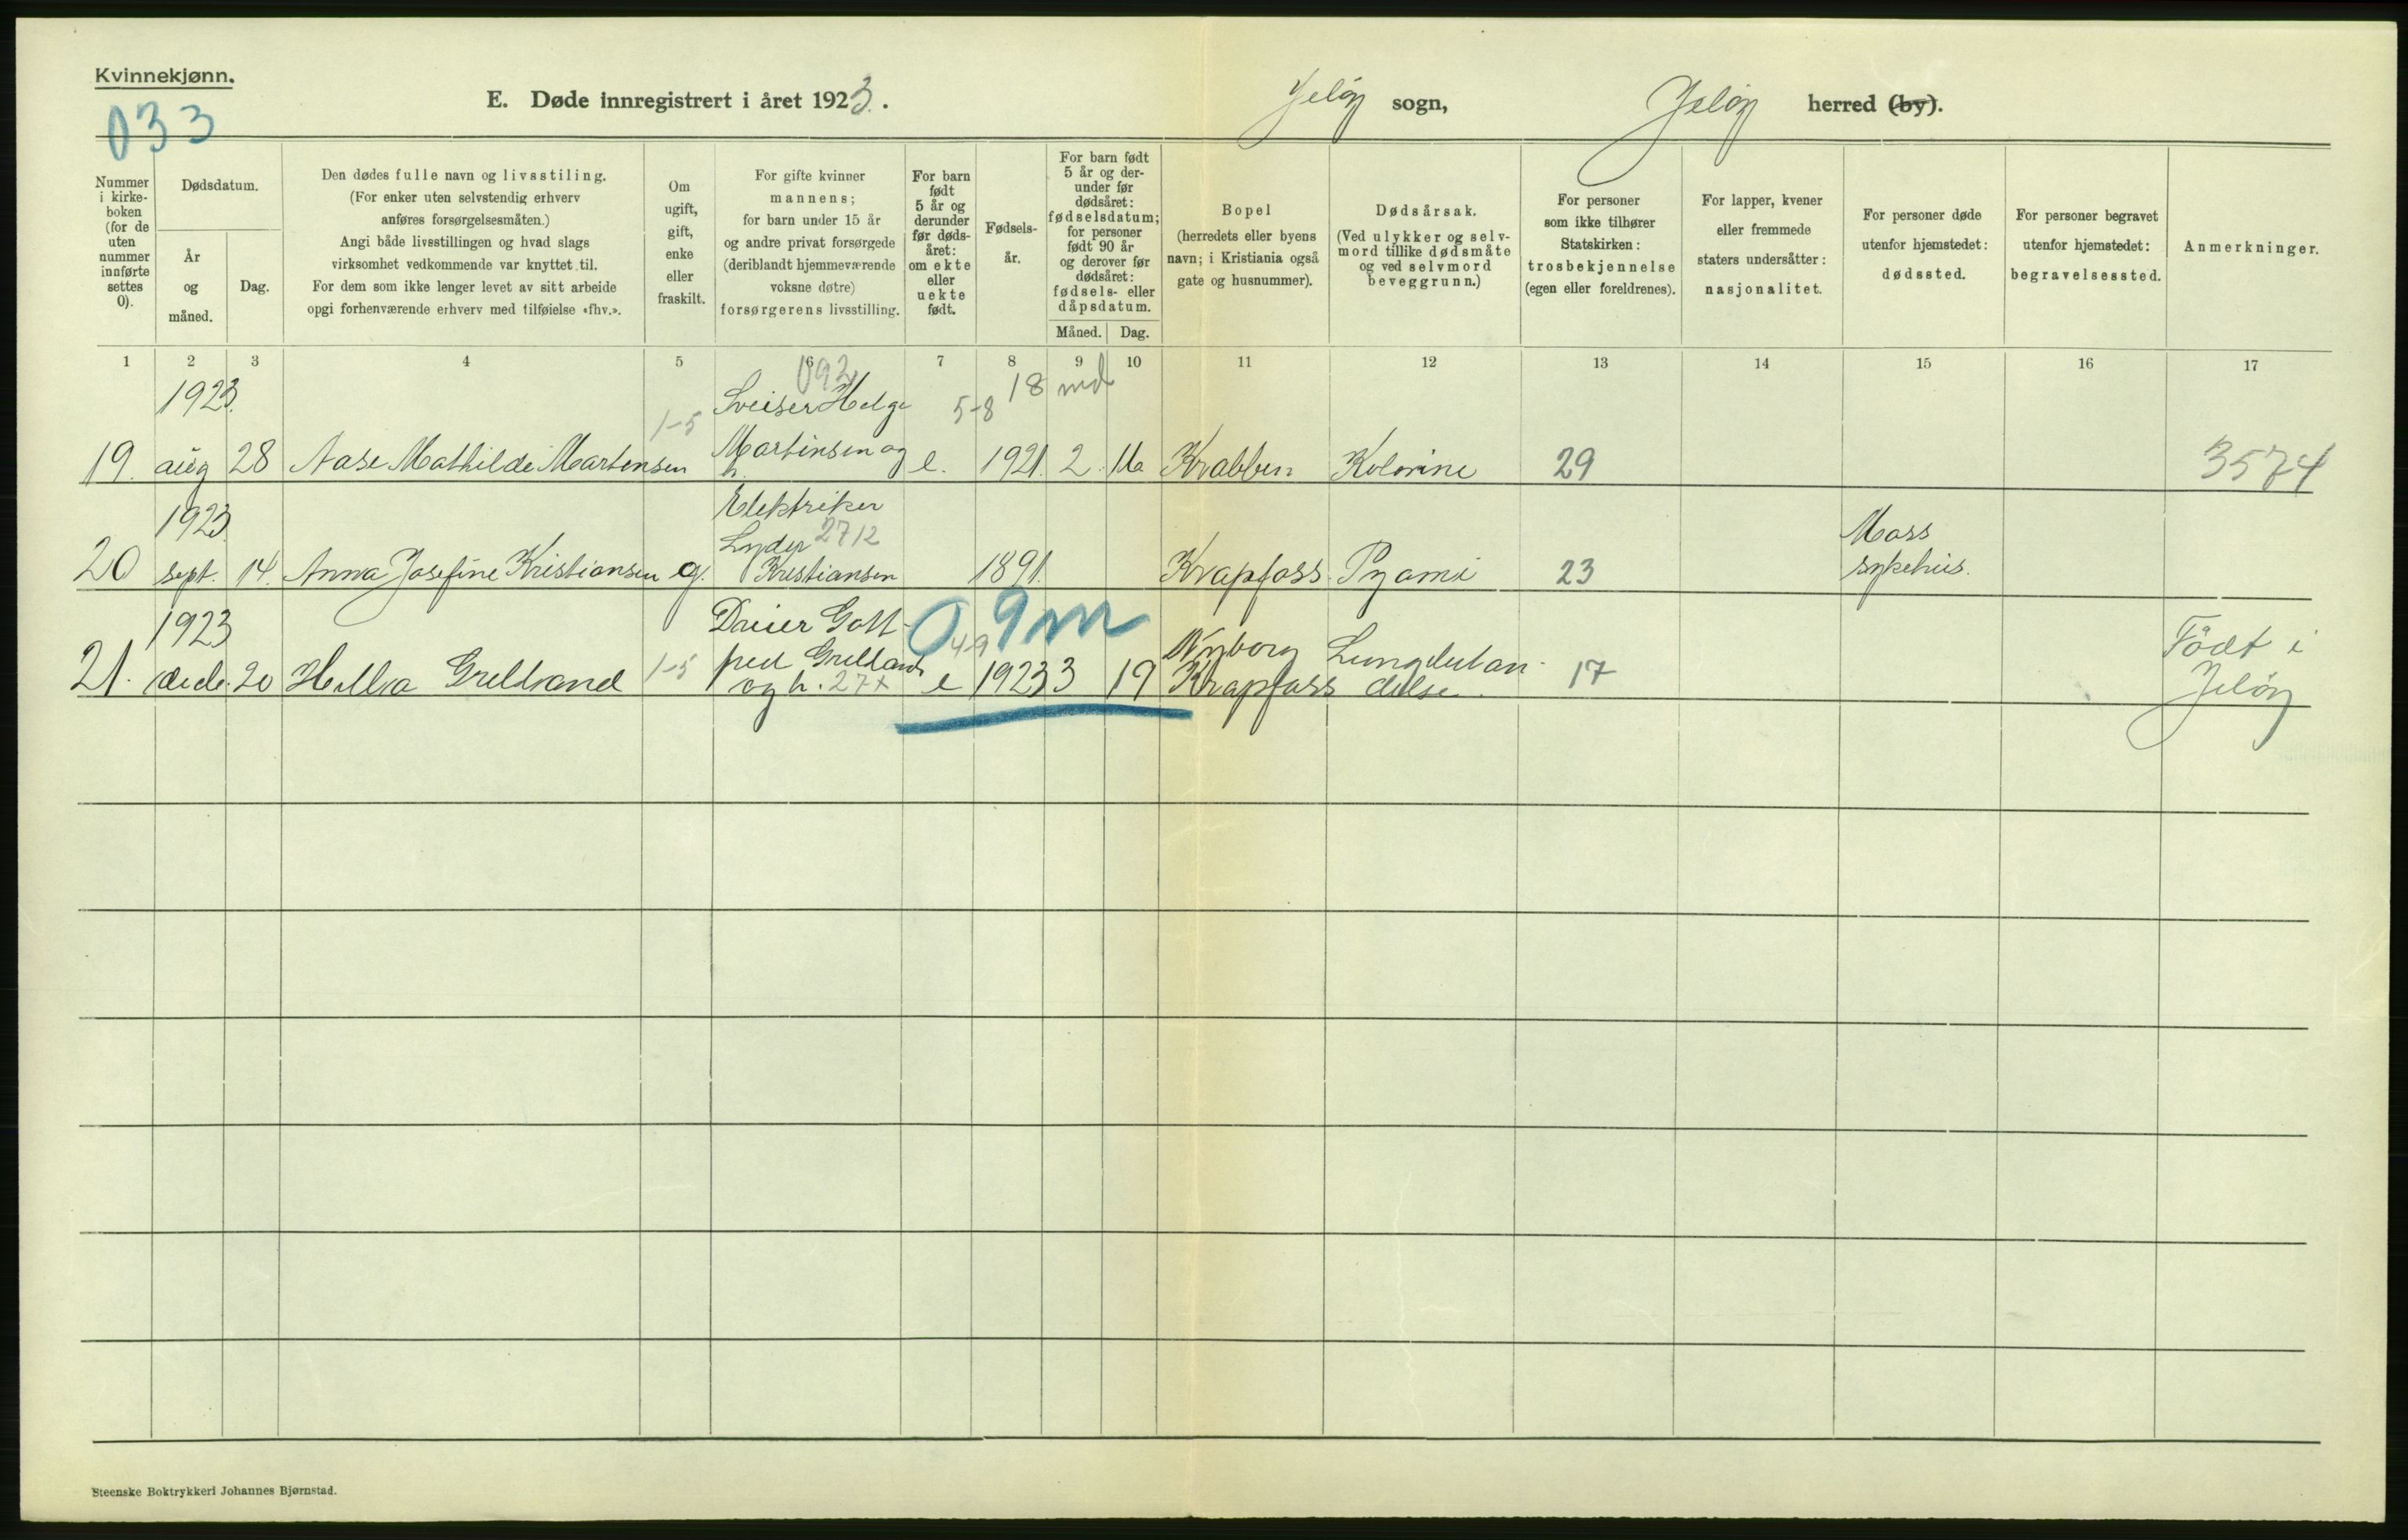 Kvinnekjønn.
033
E. Døde innregistrert i året 1923.
Jeløy sogn,
Jeløy herred (by).
Nummer
i kirke-
boken
(for de
uten
nummer
innførte
settes
0).
Dødsdatum.
År
og
måned.
Dag.
Den dødes fulle navn og livsstiling.
(For enker uten selvstendig erhverv
anføres forsørgelsesmåten.)
Angi både livsstillingen og hvad slags
virksomhet vedkommende var knyttet til.
For dem som ikke lenger levet av sitt arbeide
opgi forhenværende erhverv med tilføielse «fhv.».
Om
ugift,
gift,
enke
eller
fraskilt.
For gifte kvinner
mannens;
for barn under 15 år
og andre privat forsørgede
(deriblandt hjemmeværende
voksne døtre)
forsørgerens livsstilling.
For barn
født
5 år og
derunder
før døds-
året:
om ekte
eller
uekte
født.
Fødsels-
år.
For barn født
5 år og der-
under før
dødsåret:
fødselsdatum;
for personer
født 90 år
og derover før
dødsåret:
fødsels- eller
dåpsdatum.
Måned. Dag.
Bopel
(herredets eller byens
navn; i Kristiania også
gate og husnummer).
Dødsårsak.
(Ved ulykker og selv-
mord tillike dødsmåte
og ved selvmord
beveggrunn.)
For personer
som ikke tilhører
Statskirken:
trosbekjennelse
(egen eller foreldrenes).
For lapper, kvener
eller fremmede
staters undersåtter:
nasjonalitet.
For personer døde
utenfor hjemstedet:
dødssted.
For personer begravet
utenfor hjemstedet:
begravelsessted.
Anmerkninger.
1 2 3 4 5 6 7 8 9 10 11 12 13 14 15 16 17
092
1923. Sveiser Helge 5-8 18 md
1-5
19. aug 28 Aase Mathilde Martinsen Martinsen og h. e. 1921. 2. 16 Krabben Kolerine 29 3574
1923. Elektriker
Lyder 2712 Moss
20 sept. 14. Anna Josefine Kristiansen g. Kristiansen 1891. Krapfoss Pyämi 23 sykehus.
1923 Dreier Gott- 09m
4-9 Nyborg Lungebetæn- Født i
21. decb. 20 Hellva Grelland 1-5 fred Grelland og h. 27x e 1923 3 19 Krapfoss delse. 17 Jeløy
Steenske Boktrykkeri Johannes Bjørnstad.